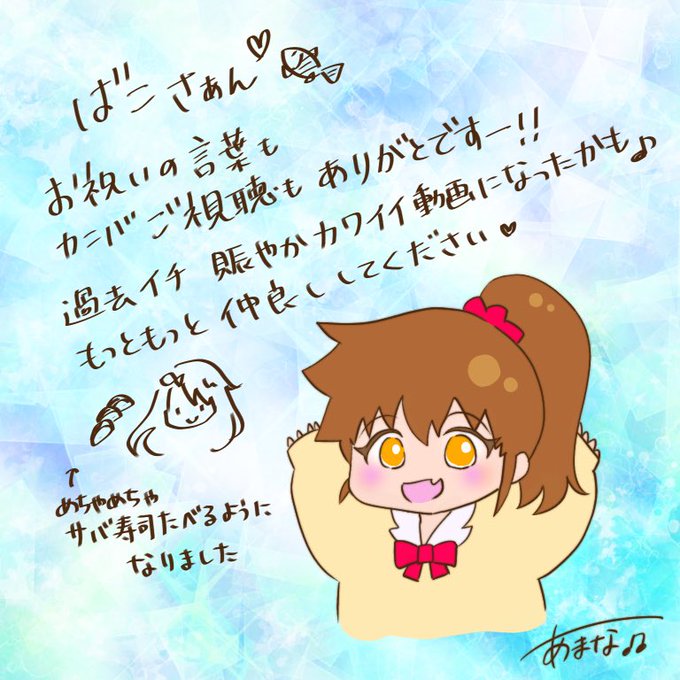 ばこさぁん♡
お祝いの言葉も
カニバご視聴も ありがとですー!!
過去イチ 賑やかカワイイ動画になったかも♪
もっともっと 仲良ししてください♥
↑
めちゃめちゃ
サバ寿司たべるように
なりました
あまな♫